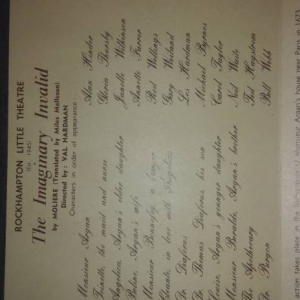 ROCKHAMPTON LITTLE THEATRE
The Imaginary Invalid
by MOLIERE (Translated by Miles Malleson)
Directed by: VAL HARDMAN
Characters in order of appearance:
Monsieur Argan Alan Hinder
Toinette, the maid and nurse Gloria Thursby
Angelica, Argan's elder daughter Janelle Wilkinson
Beline, Argan's wife Annette Turner
Monsieur Bonnefoy, a lawyer Rod Wellings
Cleante, in love with Angelica Gary Westwood
Dr. Diafoirus Les Hardman
Dr. Thomas Diafoirus, his son Michael Byrnes
Louise, Argan's younger daughter Carol Taylor
Monsieur Beralde, Argan's brother Neil Waite
The Apothecary Ted Hagstrom
Dr. Purgon Bill Webb